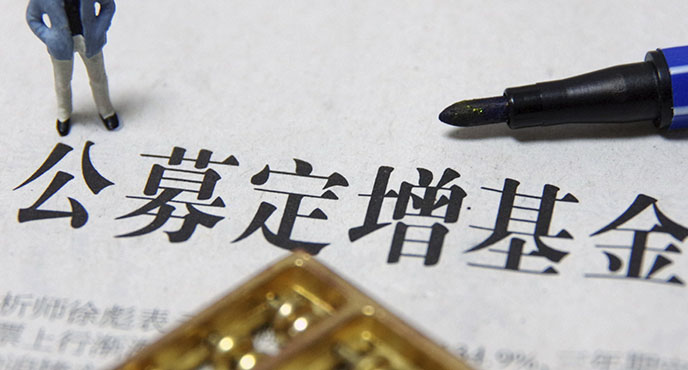 公募定增基金
析师徐彪表
票上行渐
34.9%, 三年期